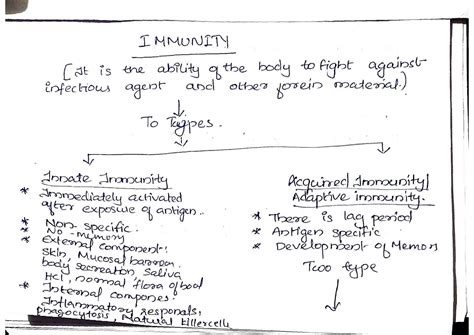 IMMUNITY
(It is the ability of the body to fight against
infectious agent and other forein material.)
To Types.
Innate Immunity
* Immediately activated
after exposure of antigen..
* Non-Specific.
* No-memory
* External Component:
Skin, Mucosal barron
body secreation, Saliva
Hcl, normal flora of bod
* Internal compones:
Inflammatory responals,
phagocytosis, Natural killercells
Acquired Immunity/
Adaptive immunity.
* There is lag period
* Antigen specific
* Development of Memory
Two type